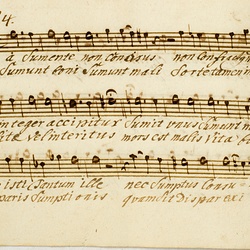 4.
a Sumente non concisus non confractus
Sumunt boni Sumunt mali sorte tamen
integer accipitur Sumit unus Sumunt m
vita vel interitus mors est malis vita
isti Tantum ille nec Sumptus Consu
paris Sumptionis quam sit dispar exi